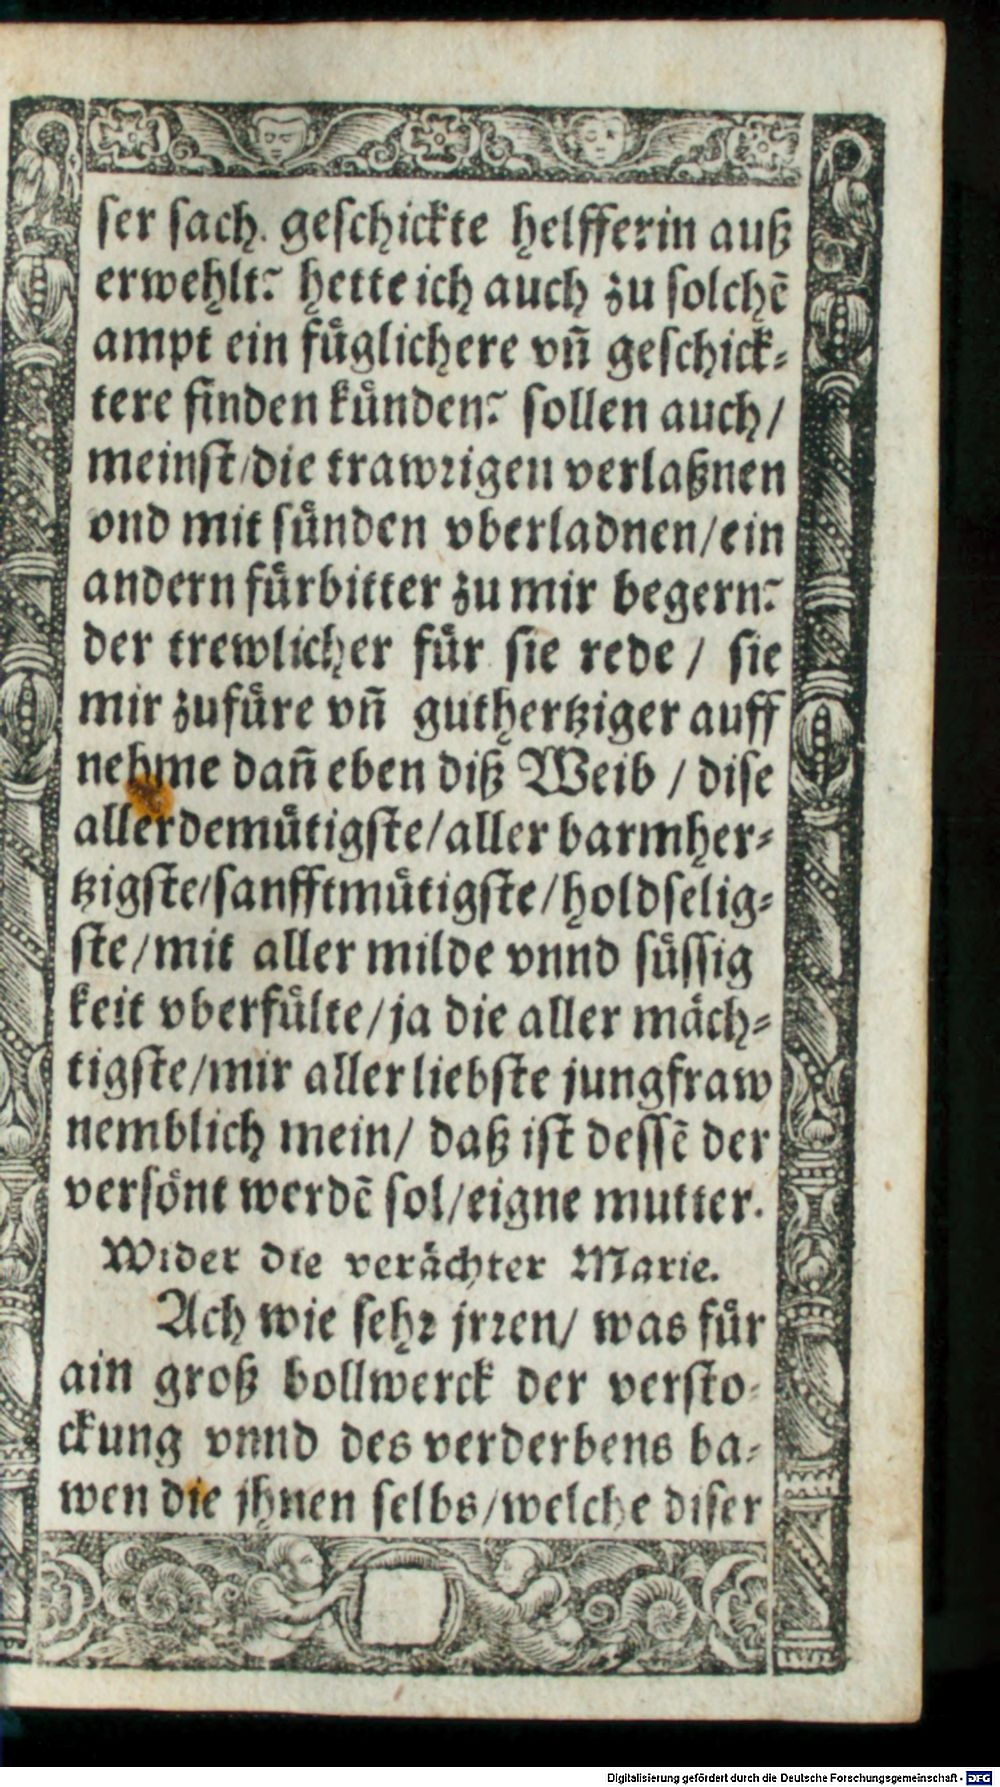 ser sach. geschickte helfferin auß
erwehlt? hette ich auch zu solchē
ampt ein fůglichere vñ geschick⸗
tere finden kůnden? sollen auch/
meinst/die trawrigen verlaßnen
ond mit sůnden vberladnen/ein
andern fůrbitter zu mir begern?
der trewlicher fůr sie rede / sie
mir zufůre vñ guthertziger auff
nehme dañ eben diß Weib / dise
allerdemůtigste/aller barmher⸗
tzigste/sanfftmůtigste/holdselig⸗
ste/mit aller milde vnnd sůssig
keit vberfůlte/ja die aller mäch⸗
tigste/mir aller liebste jungfraw
nemblich mein/ daß ist dessē der
versönt werdē sol/eigne mutter.
Wider die verächter Marie.
Ach wie sehr jrren/ was fůr
ain groß bollwerck der versto⸗
ckung vnnd des verderbens ba⸗
wen die jhnen selbs/welche diser
Digitalisierung gefördert durch die Deutsche Forschungsgemeinschaft - DFG